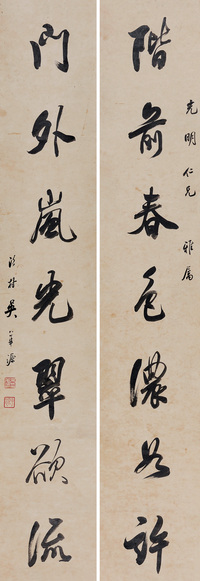 階前春色濃如許
光明仁兄雅屬
門外嵐光翠欲流
吳